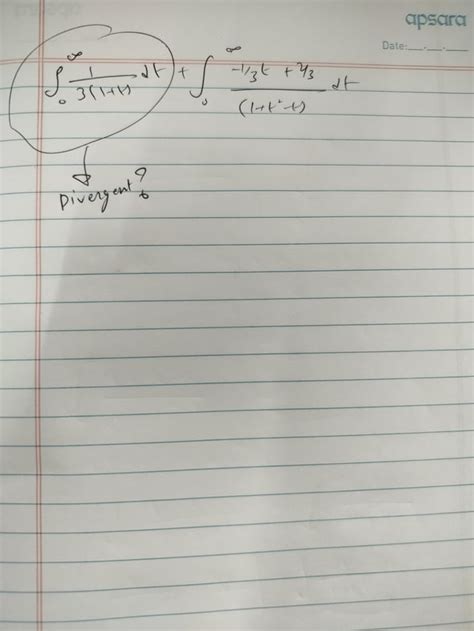 apsara
Date:__.__.__
∫₀^∞ 1/3(1+t) dt + ∫₀^∞ -1/3t + 2/3/(1+t²-t) dt
Divergent?